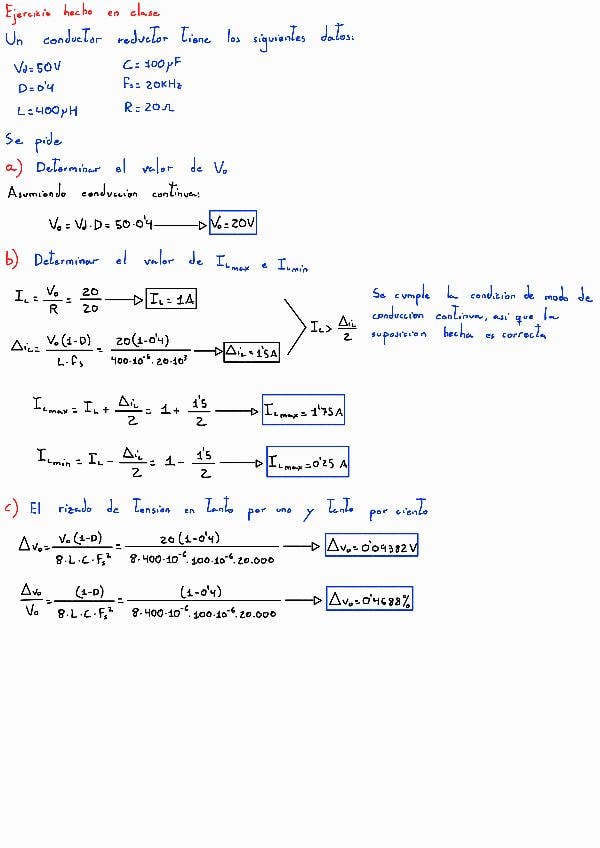 Ejercicio hecho en clase
Un conductor reductor tiene los siguientes datos:
Vd=50V C=100μF
D=0'4 Fs=20KHz
L=400μH R=20Ω
Se pide
a) Determinar el valor de Vo
Asumiendo conduccion continua:
Vo = Vd·D = 50·0'4 → Vo=20V
b) Determinar el valor de ILmax e ILmin
IL = Vo/R = 20/20 → IL=1A
ΔiL = Vo(1-D)/(L·fs) = 20(1-0'4)/(400·10⁻⁶·20·10³) → ΔiL=1'5A
IL > ΔiL/2
Se cumple la condición de modo de
conduccion continua, asi que la
suposicion hecha es correcta
ILmax = IL + ΔiL/2 = 1 + 1'5/2 → ILmax=1'75A
ILmin = IL - ΔiL/2 = 1 - 1'5/2 → ILmax=0'25 A
c) El rizado de tension en tanto por uno y tanto por ciento
ΔVo = Vo(1-D)/(8·L·C·Fs²) = 20(1-0'4)/(8·400·10⁻⁶·100·10⁻⁶·20.000) → ΔVo=0'09382V
ΔVo/Vo = (1-D)/(8·L·C·Fs²) = (1-0'4)/(8·400·10⁻⁶·100·10⁻⁶·20.000) → ΔVo=0'4688%